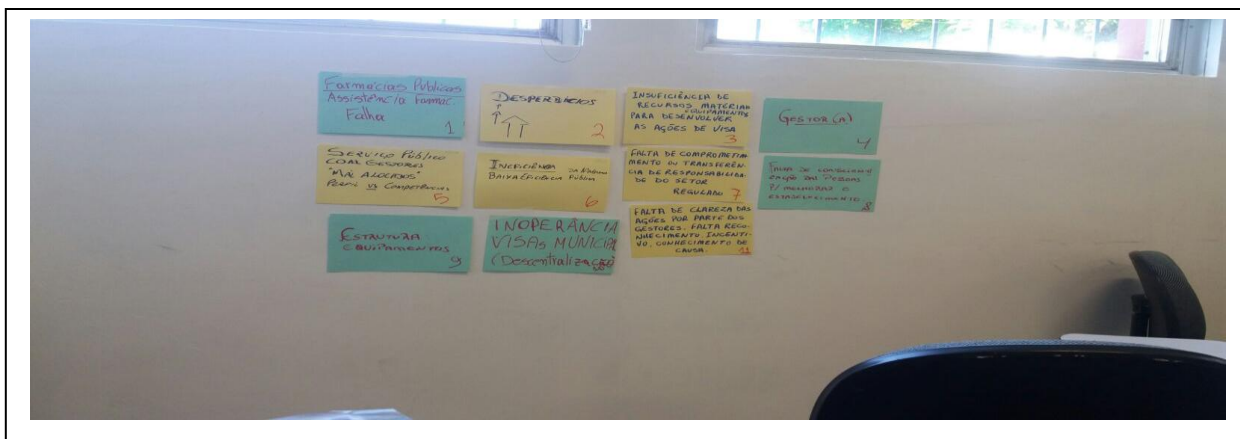 Farmácias Públicas
Assistência Farmac.
Falha
1
DESPERDÍCIOS
2
INSUFICIÊNCIA DE
RECURSOS MATERIAIS
EQUIPAMENTOS
PARA DESENVOLVER
AS AÇÕES DE VISA
3
GESTOR(A)
4
SERVIÇO Público
COM GESTORES
"MAL ALOCADOS"
PERFIL VS Competências
5
INEFICIÊNCIA
BAIXA EFICIÊNCIA Pública
6
FALTA DE COMPROMETIM
MENTO OU TRANSFERÊN-
CIA DE RESPONSABILIDA-
DE DO SETOR
REGULADO 7
FALTA DE
ZAÇÃO DAS PESSOAS
P/ MELHORAR O
8
ESTRUTURA
EQUIPAMENTOS
9
INOPERÂNCIA
VISAs MUNICIPA
(Descentralização)
FALTA DE CLAREZA DAS
AÇÕES POR PARTE DOS
GESTORES. FALTA RECO-
NHECIMENTO, INCENTI-
VO, CONHECIMENTO DE
CAUSA.
11